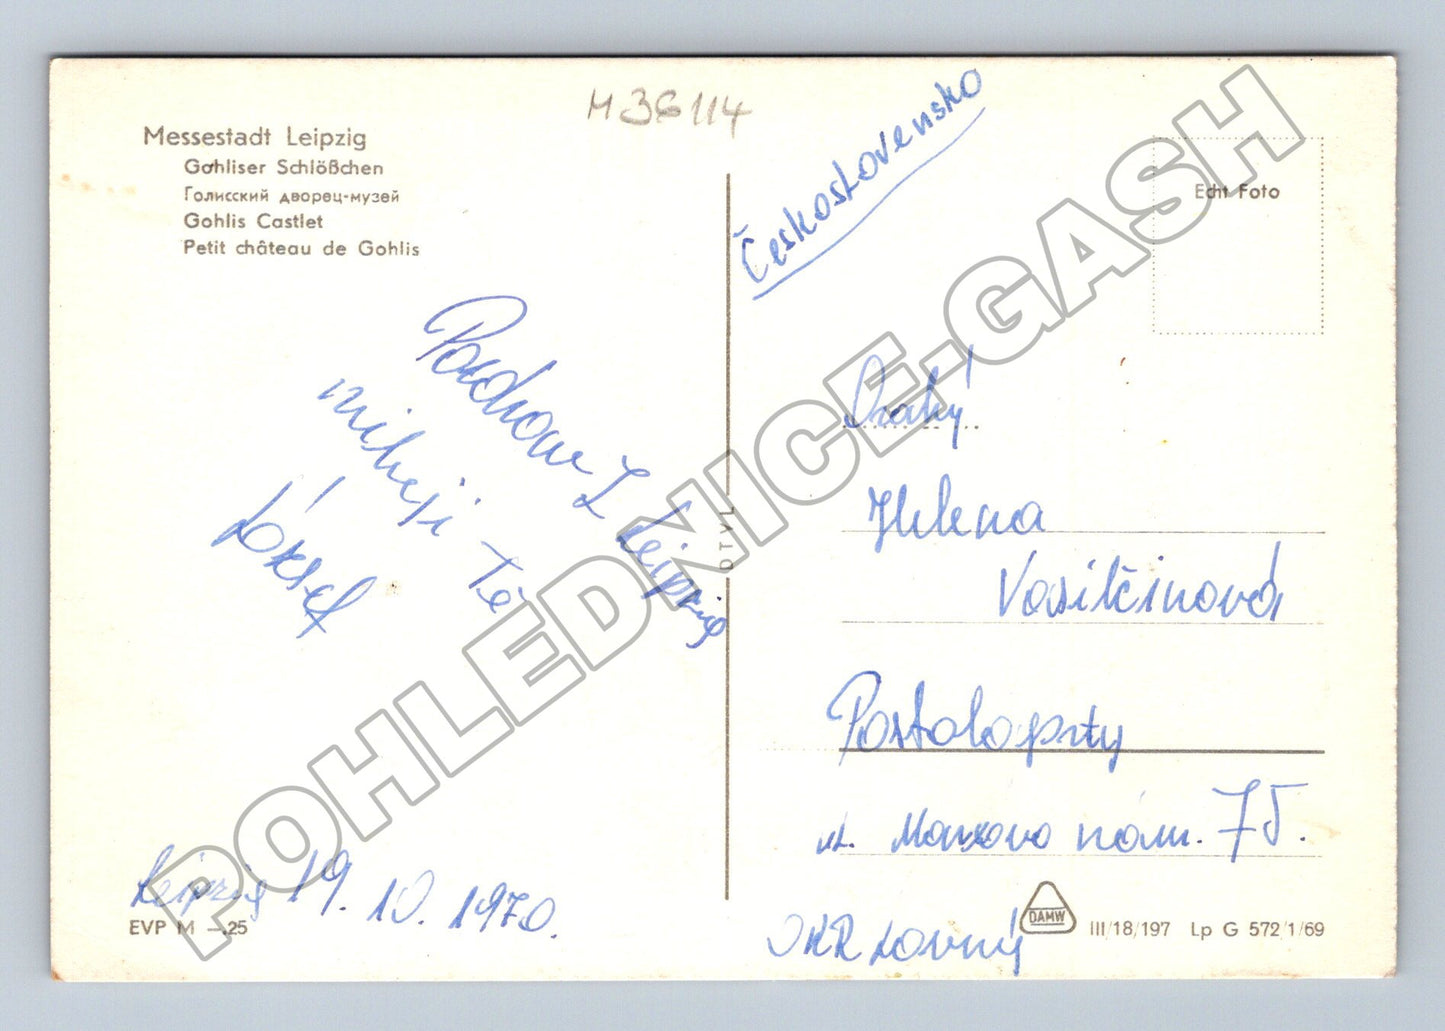 M 36114
Messestadt Leipzig
Gohliser Schlößchen
Голисский дворец-музей
Gohlis Castlet
Petit château de Gohlis
Československo
Echt Foto
Pozdrav z Leipzig
Tě
Josef
Leipzig 19. 10. 1970.
EVP M –.25
Drahý
Helena
Vasilčinová
Postoloprty
ul. Marxovo nám. 75.
OKR Lovný
DAMW
III/18/197 Lp G 572/1/69
POHLEDNICE-GASH